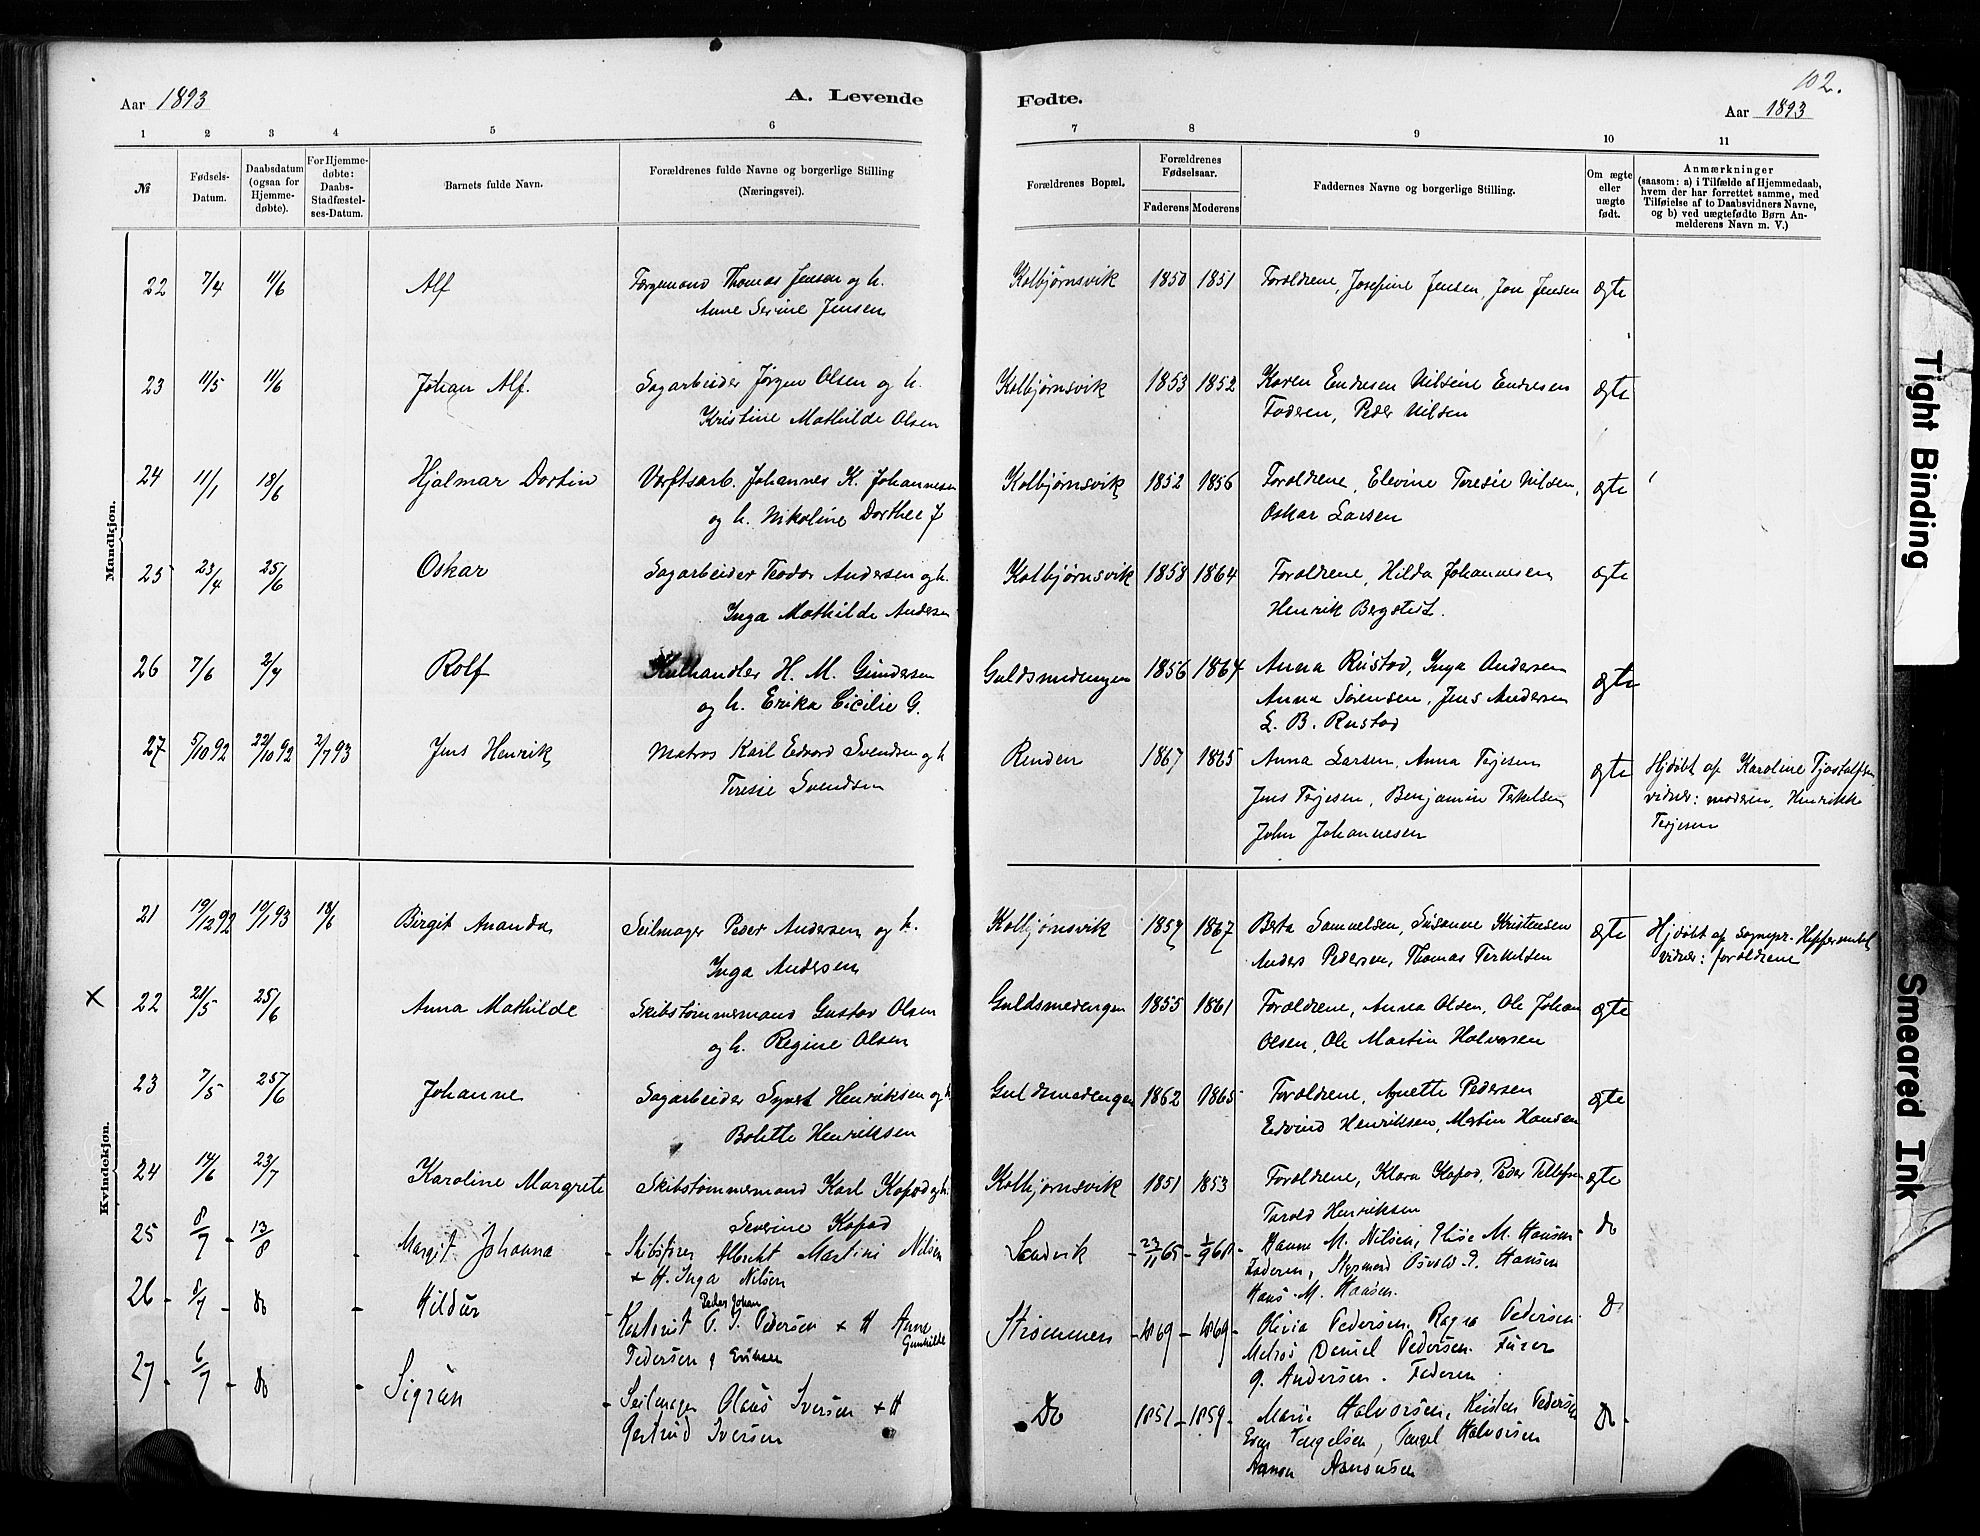 102.
Aar 1893
A. Levende Fødte.
Aar 1893
1 2 3 4 5 6 7 8 9 10 11
№
Fødsels-
Datum.
Daabsdatum
(ogsaa for
Hjemme-
døbte).
For Hjemme-
døbte:
Daabs-
Stadfæstel-
ses-Datum.
Barnets fulde Navn.
Forældrenes fulde Navne og borgerlige Stilling
(Næringsvei).
Forældrenes Bopæl.
Forældrenes
Fødselsaar.
Faderens Moderens
Faddernes Navne og borgerlige Stilling.
Om ægte
eller
uægte
født.
Anmærkninger
(saasom: a) i Tilfælde af Hjemmedaab,
hvem der har forrettet samme, med
Tilføielse af to Daabsvidners Navne,
og b) ved uægtefødte Børn An-
melderens Navn m. V.)
Mandkjøn.
22 7/4 11/6 Alf Færgemand Thomas Jensen og h. Kolbjørnsvik 1850 1851 Foraldrene, Josefine Jensen, Jon Jensen ægte
Anne Serine Jensen
23 11/5 11/6 Johan Alf. Sagarbeider Jørgen Olsen og h. Kolbjørnsvik 1853 1852 Karen Endresen Nilsine Endresen ægte
Kristine Mathilde Olsen Faderen, Peder Nilsen
24 11/1 18/6 Hjalmar Dortin Værftsarb. Johannes K. Johannesen Kolbjørnsvik 1852 1856 Foraldrene, Elevine Teresie Nilsen, ægte
og h. Nikoline Dorthee J Oskar Larsen
25 23/4 25/6 Oskar Sagarbeider Teodor Andersen og h. Kolbjørnsvik 1858 1864 Foraldrene, Hilda Johannesen ægte
Inga Mathilde Andersen Henrik Bergstedt.
26 7/6 2/7 Rolf Kulhandler H. M. Gundersen Guldsmedengen 1856 1864 Anna Rustad, Inga Andersen ægte
og h. Erika Cicilie G. Anna Sørensen, Jens Andersen
L. B. Rustad
27 5/10 92 22/10 92 2/7 93 Jens Henrik Matros Karl Edvard Svendsen og h Renden 1867 1865 Anna Larsen, Anna Terjesen ægte Hjdøbt af Karoline Tjostolfsen
Teresie Svendsen Jens Terjesen, Benjamin Terkelsen vidner: moderen, Henrikke
John Johannesen Terjesen
Kvindekjøn.
21 19/12 92 10/1 93 18/6 Birgit Ananda Seilmager Peder Andersen og h. Kolbjørnsvik 1857 1867 Berta Samuelsen, Susanne Kristensen ægte Hjdøbt af sognepr.
Inga Andersen Anders Pedersen, Thomas Terkelsen vidner: foraldrene
x 22 21/5 25/6 Anna Mathilde Skibstømmermand Gustav Olsen Guldsmedengen 1855 1861 Foraldrene, Anna Olsen, Ole Johan ægte
og h. Regine Olsen Olsen, Ole Martin Halvorsen
23 7/5 25/6 Johanne Sagarbeider Syvert Henriksen og h Guldsmedengen 1862 1865 Foraldrene, Agnette Pedersen ægte
Bolette Henriksen Edvind Henriksen, Martin Hansen
24 14/6 23/7 Karoline Margrete Skibstømmermand Karl Kofod og h. Kolbjørnsvik 1851 1853 Foraldrene, Klara Kofod, Peder Tellefsen ægte
Severine Kofod Torvald Henriksen
25 8/7 - 13/8 - Margit Johanna - Skibsfører Albrekt Martini Nilsen Sandvik - 23/11 65 - 1/9 68 - Hanne M. Nilsen, Elise M. Hansen Do
+ H. Inga Nilsen Faderen, Styrmand Osvald P. Hansen
Hans M. Hansen.
26 - 8/7 - Do - Hildur - Peder Johan
Kontorist P. J. Pedersen + H Anne Gunhilde Strømmen - 1869 - 1869 - Olivia Pedersen, Ragna Pedersen Do
Pedersen f. Eriksen Matros Daniel Pedersen.
G. Andersen. Faderen
27 - 6/7 - Do - Sigrun - Seilmager Olaus Iversen + H Do 1851 - 1859 - Marie Halvorsen, Kirsten Pedersen Do -
Gertrud Iversen Even Tengelsen, Tengel Halvorsen
Aanon Aanonsen
Tight Binding
Smeared Ink